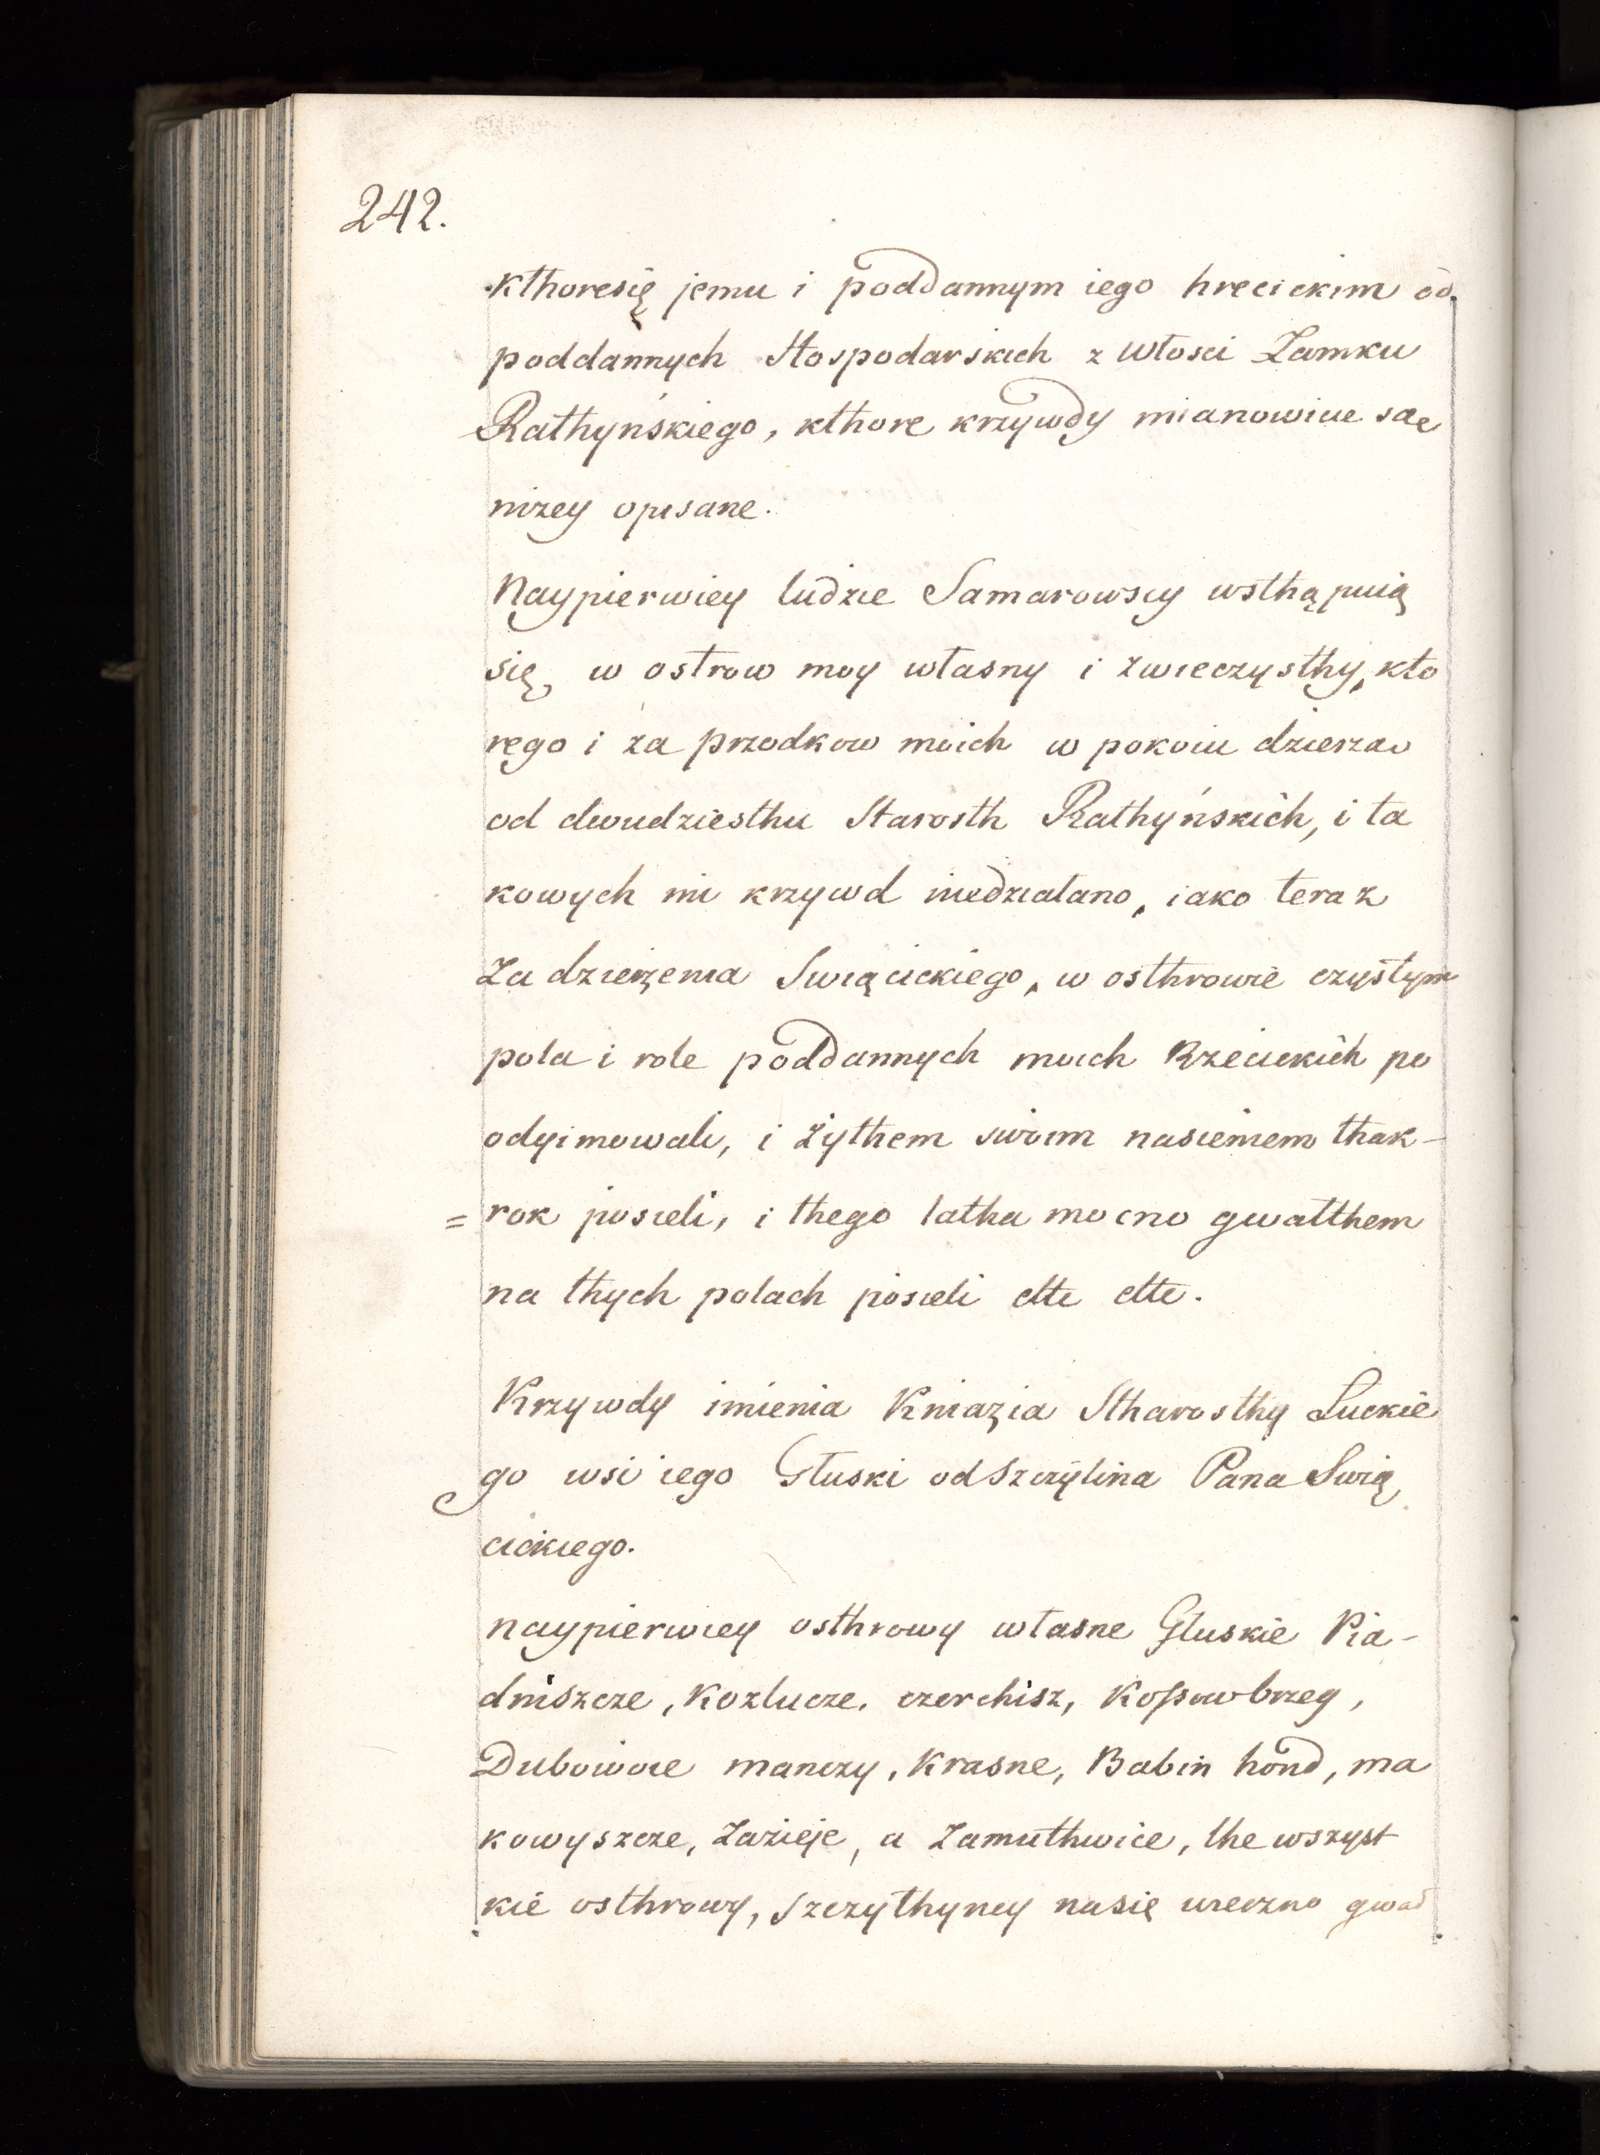 242.
kthoresię jemu i poddannym iego hrecickim od
poddannych Hospodarskich z Włosci Zamku
Rathyńskiego, kthore krzywdy mianowicie sae
nizey opisane.
Naypierwiey ludzie Samarowscy wsthąpuią
się, w ostrow moy własny i zwieczysthy, kto
rego i za przodkow moich w pokoiu dzierzao
od dwudziesthu Starosth Rathyńskich, i ta
kowych mi krzywd niedziałano, iako teraz
za dzierzenia Swiącickiego, w osthrowie czystym
pola i role poddannych moich Rzecickich po
odyimowali, i żythem swoim nasieniem thak-
= rok posieli, i thego latha mocno gwałthem
na thych polach posieli ette ette.
Krzywdy imienia Kniazia Stharosthy Łuckie
go wsi iego Głuski od Szczytina Pana Swią
cickiego.
naypierwiey osthrowy własne Gluskie Pia-
dniszcze, Kozlucze, czerchisz, Kossowbrzeg,
Dubowoie manczy, Krasne, Babin hond, ma
kowyszcze, Zazieje, a Zamuthwice, the wszyst
kie osthrowy, Szczythyncy nasię wieczno gwał